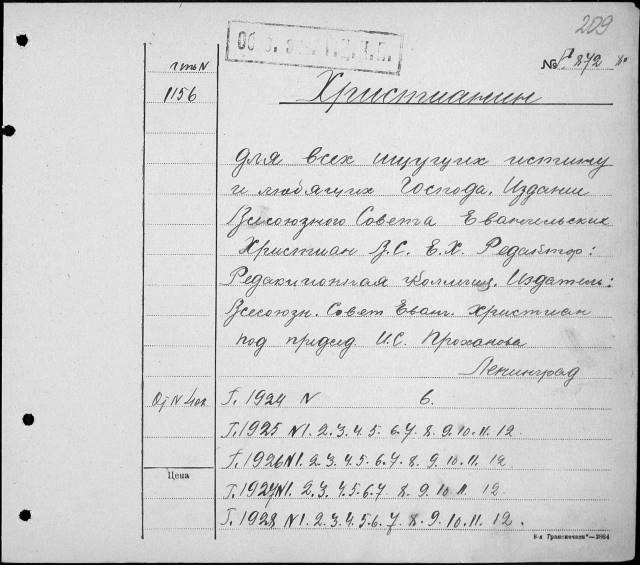 209
№ 872
1156
Христианин
для всех ищущих истину
и любящих Господа. Издание
Всесоюзного Совета Евангельских
Христиан В.С.Е.Х. Редактор:
Редакционная Коллегия. Издатель:
Всесоюзн. Совет Еванг. Христиан
под председ И.С. Проханова
Ленинград
Г. 1924 N 6.
Г. 1925 N1. 2. 3. 4. 5. 6. 7. 8. 9. 10. 11. 12.
Г. 1926 N1. 2. 3. 4. 5. 6. 7. 8. 9. 10. 11. 12.
Цена
Г. 1927 N1. 2. 3. 4. 5. 6. 7. 8. 9. 10. 11. 12.
Г. 1928 N1. 2. 3. 4. 5. 6. 7. 8. 9. 10. 11. 12.
8-я „Транспечати“—2864